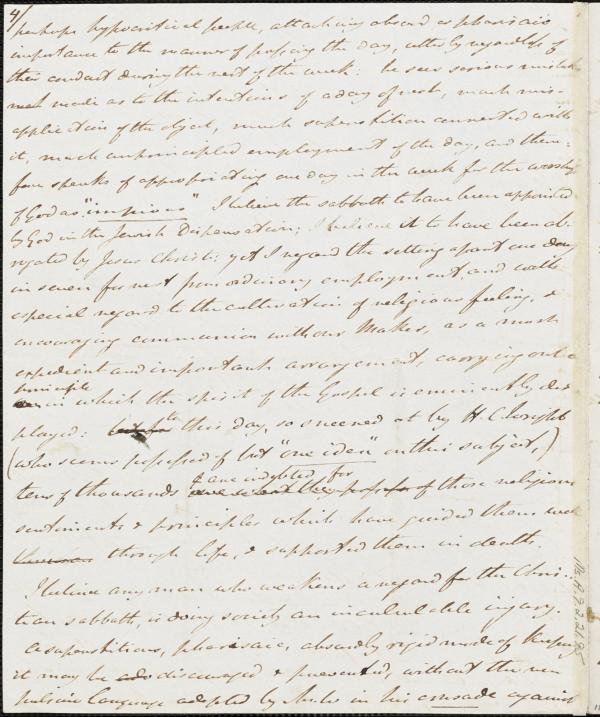 4/
perhaps hypocritical people, attaching absurd or pharisaic
importance to the manner of passing the day, utterly regardless of
their conduct during the rest of the week: he sees serious mistakes
made as to the intentions of a day of rest, much mis-
application of the object, much superstition connected with
it, much unprincipled employment of the day, and there-
fore speaks of appropriating one day in the week for the worship
of God as "impious" I believe the sabbath to have been appointed
by God in the Jewish Dispensation; I believe it to have been ab-
rogated by Jesus Christ: yet I regard the setting apart one day
in seven for rest from ordinary employment, and with
especial regard to the cultivation of religious feeling, &
encouraging communion with our Maker, as a most
expedient and important arrangement, carrying out a
principle
in which the spirit of the Gospel is eminently dis
played: to this day, so sneered at by H. C. Wright
(who seems possessed of but "one idea" on this subject,)
tens of thousands are indebted for those religious
sentiments & principles which have guided them well
through life, & supported them in death.
I believe any man who weakens a regard for the Chris-
tian sabbath, is doing society an incalculable injury.
A superstitious, pharisaic, absurdly rigid mode of keeping
it may be discouraged & prevented, without the rep
pulsive language adopted by in his crusade against
Ms. A. 9. 2. 21. 95